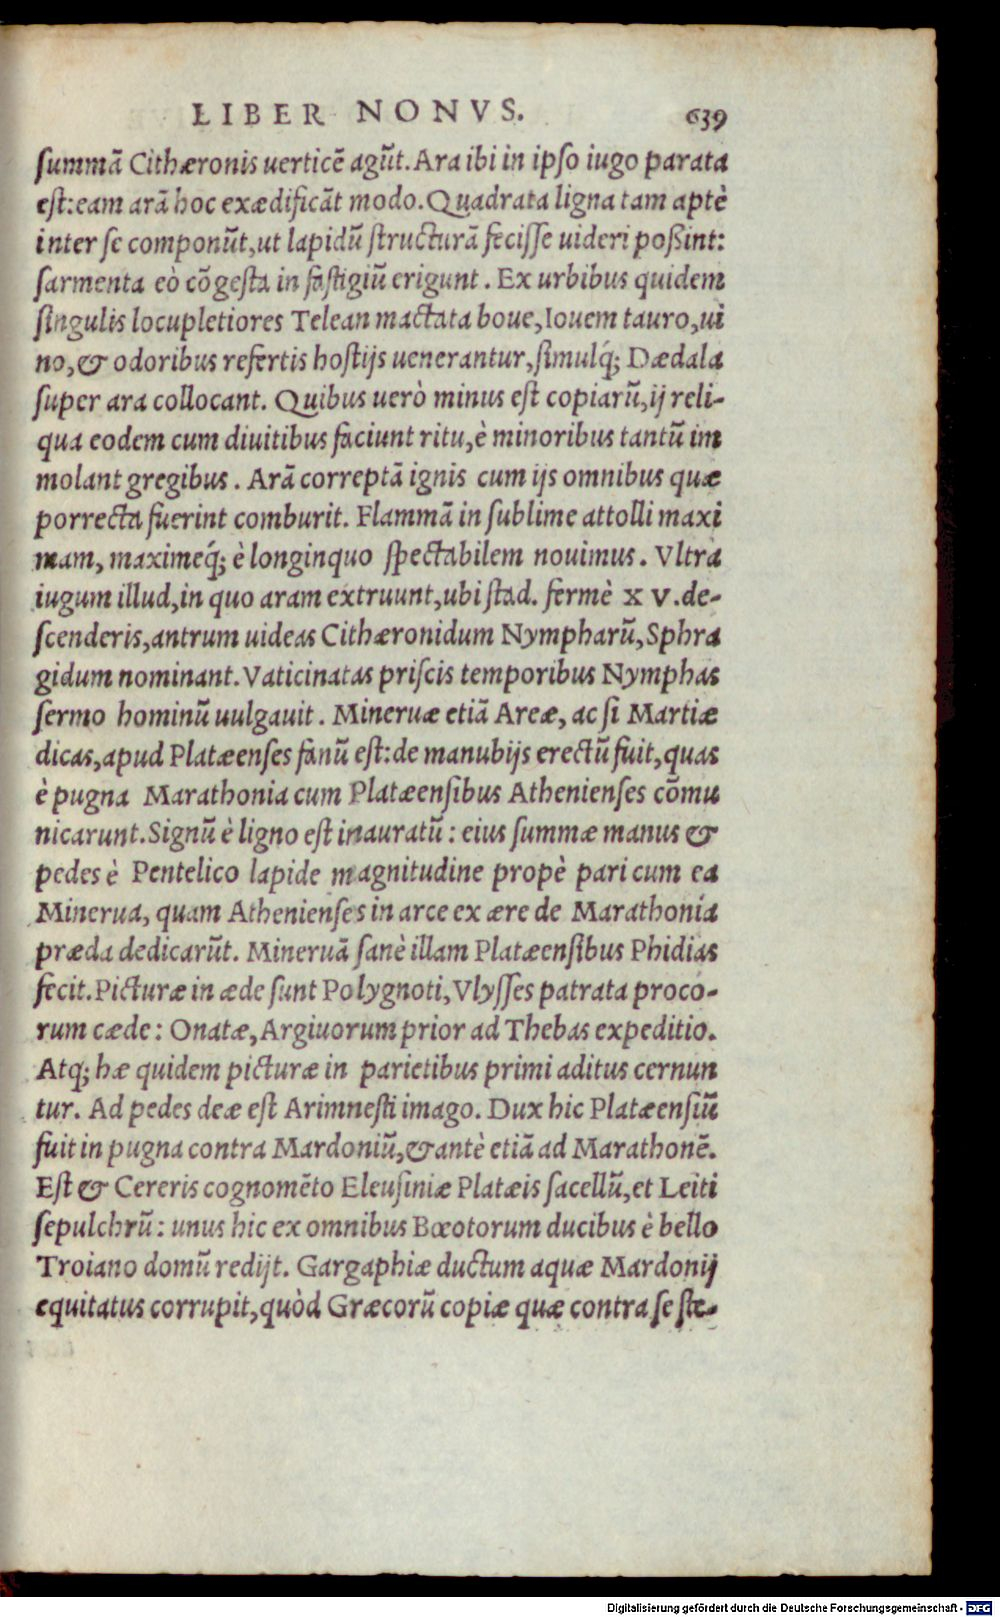 LIBER NONVS. 639
ſummā Cithæronis uerticē agūt. Ara ibi in ipſo iugo parata
eſt: eam arā hoc exædificāt modo. Quadrata ligna tam aptè
inter ſe componūt, ut lapidū ſtructurā feciſſe uideri poßint:
ſarmenta eò cōgeſta in faſtigiū erigunt. Ex urbibus quidem
ſingulis locupletiores Telean mactata boue, Iouem tauro, ui
no, & odoribus refertis hoſtijs uenerantur, ſimulq́; Dædala
ſuper ara collocant. Quibus uerò minus eſt copiarū, ij reli-
qua eodem cum diuitibus faciunt ritu, è minoribus tantū im
molant gregibus. Arā correptā ignis cum ijs omnibus quæ
porrecta fuerint comburit. Flammā in ſublime attolli maxi
mam, maximeq́; è longinquo ſpectabilem nouimus. Vltra
iugum illud, in quo aram extruunt, ubi ſtad. fermè XV. de-
ſcenderis, antrum uideas Cithæronidum Nympharū, Sphra
gidum nominant. Vaticinatas priſcis temporibus Nymphas
ſermo hominū uulgauit. Mineruæ etiā Areæ, ac ſi Martiæ
dicas, apud Platæenſes fanū eſt: de manubijs erectū fuit, quas
è pugna Marathonia cum Platæenſibus Athenienſes cōmu
nicarunt. Signū è ligno eſt inauratū: eius ſummæ manus &
pedes è Pentelico lapide magnitudine propè pari cum ea
Minerua, quam Athenienſes in arce ex ære de Marathonia
præda dedicarūt. Mineruā ſanè illam Platæenſibus Phidias
fecit. Picturæ in æde ſunt Polygnoti, Vlyſſes patrata proco-
rum cæde: Onatæ, Argiuorum prior ad Thebas expeditio.
Atq; hæ quidem picturæ in parietibus primi aditus cernun
tur. Ad pedes deæ eſt Arimneſti imago. Dux hic Platæenſiū
fuit in pugna contra Mardoniū, & antè etiā ad Marathonē.
Eſt & Cereris cognomēto Eleuſiniæ Platæis ſacellū, et Leiti
ſepulchrū: unus hic ex omnibus Bœotorum ducibus è bello
Troiano domū redijt. Gargaphiæ ductum aquæ Mardonij
equitatus corrupit, quòd Græcorū copiæ quæ contra ſe ſte-
Digitalisierung gefördert durch die Deutsche Forschungsgemeinschaft - DFG